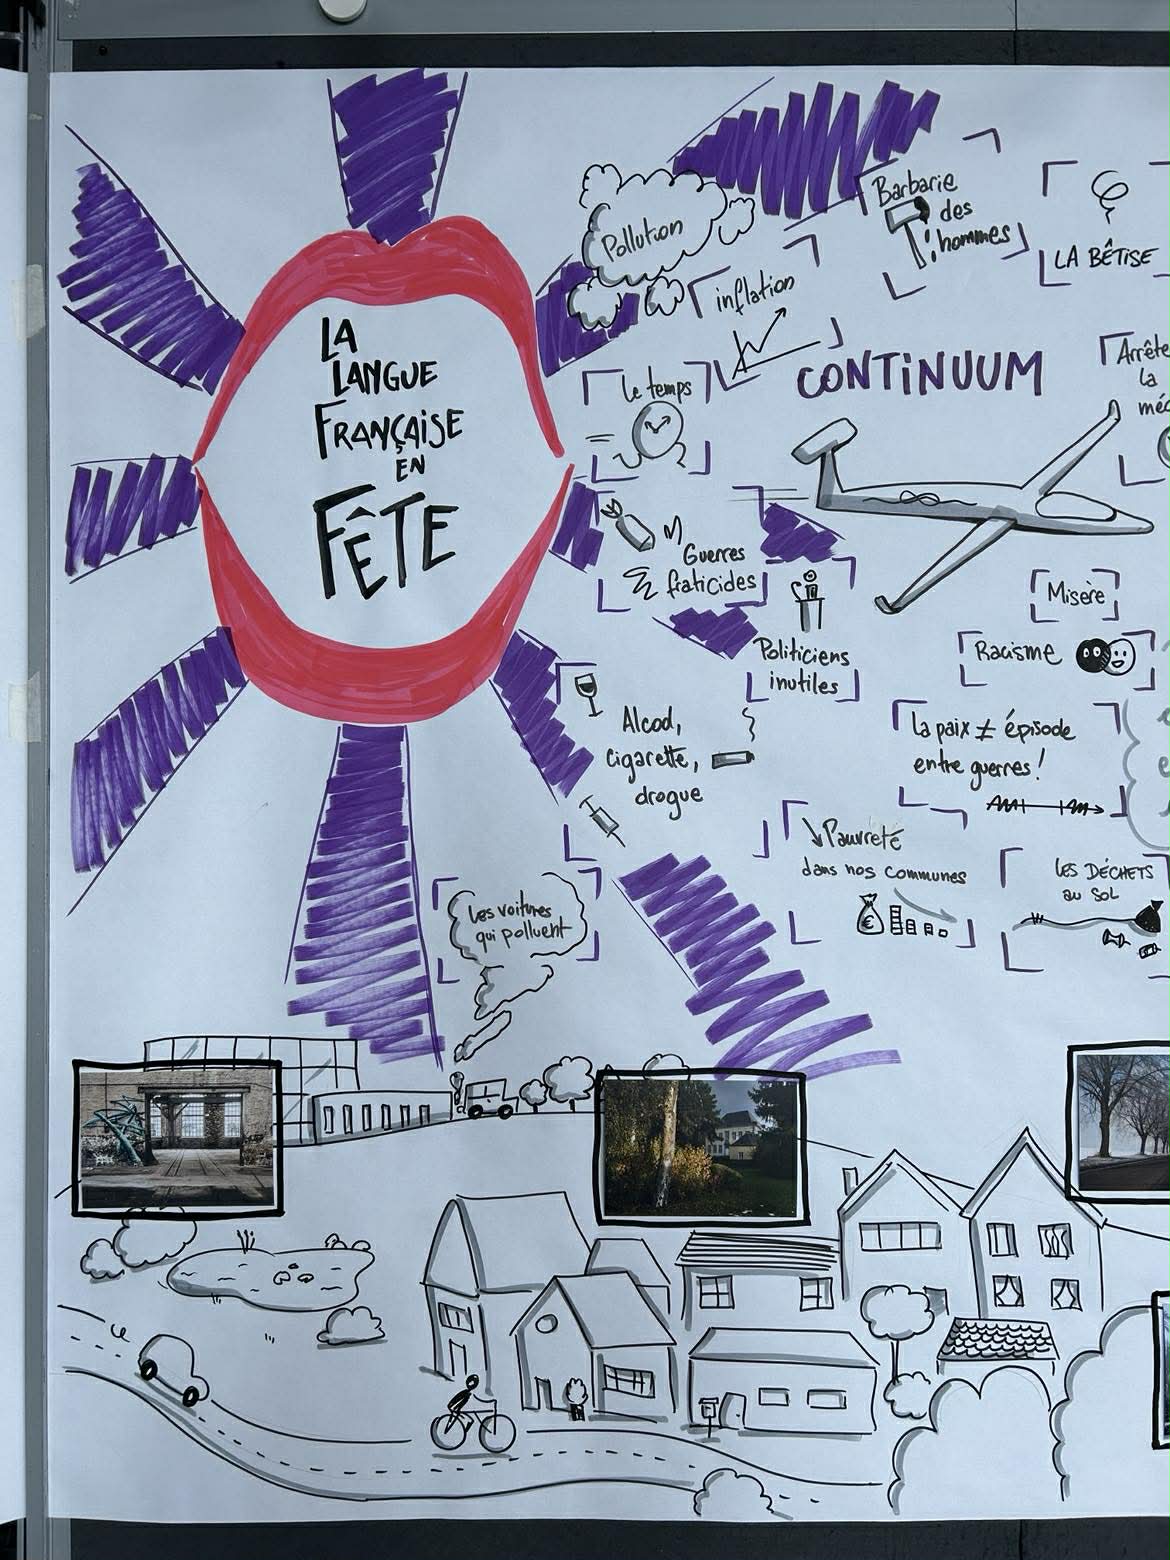 LA
LANGUE
FRANÇAISE
EN
FÊTE
Pollution
Barbarie
des
hommes
LA BÊTISE
inflation
CONTINUUM
Arrête
la
le temps
Guerres
fraticides
Misère
Racisme
Politiciens
inutiles
Alcool,
cigarette,
drogue
la paix ≠ épisode
entre guerres !
↘ Pauvreté
dans nos communes
€
LES DÉCHETS
AU SOL
Les voitures
qui polluent